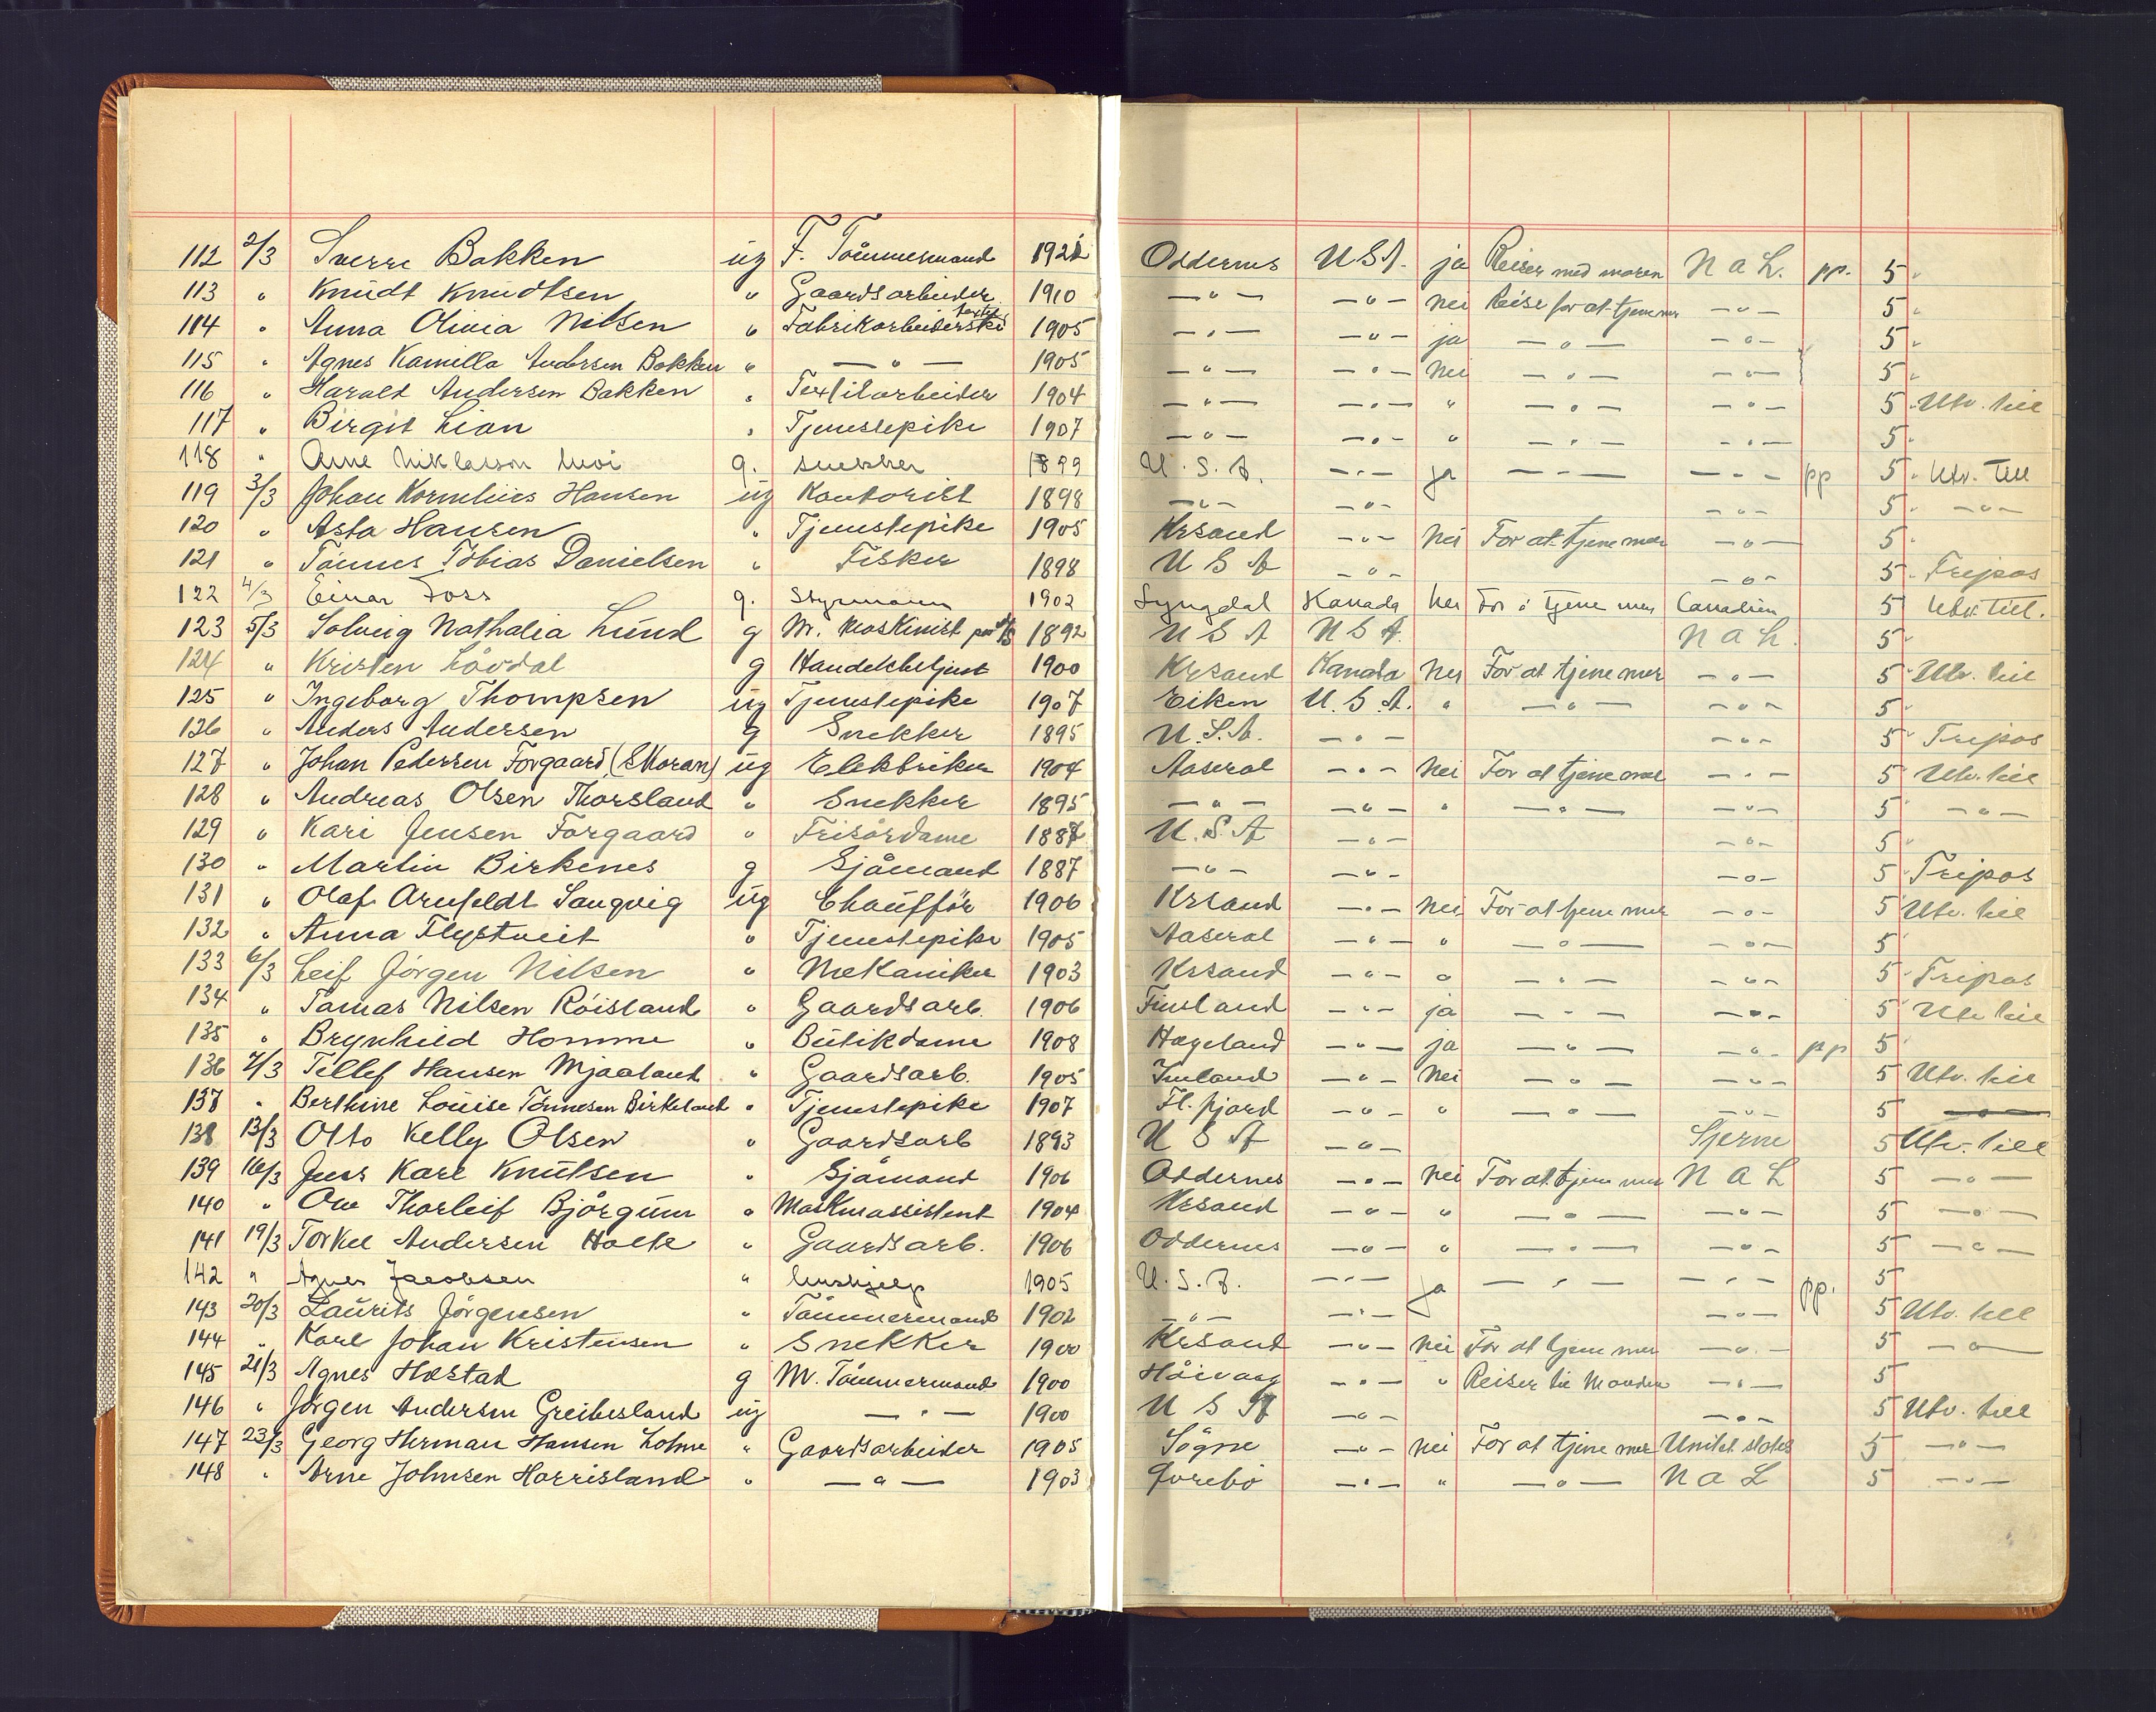 112 2/3 Sverre Bakken ug F. Tömmermand 1921 Oddernes U S A. ja Reiser med moren N a L. pp. 5
113 " Knudt Knudtsen " Gaardsarbeider 1910 — " — — " — nei Reise for at tjene mer — " — 5
114 " Anna Olivia Nilsen " Fabrikarbeiderske 1905 — " — — " — ja — " — — " — 5
115 " Agnes Kamilla Andersen Bakken " — " — 1905 — " — — " — nei — " — — " — 5
116 " Harald Andersen Bakken " Textilarbeider 1904 — " — — " — " — " — — " — 5 Utv. till
117 " Birgit Lian " Tjenestepike 1907 — " — — " — " — " — — " — 5
118 " Arne Niklasson g. snekker 1899 U. S. A. — " — ja — " — — " — pp 5 Utv. till
119 3/3 Johan Kornelius Hansen ug Kontorist 1898 — " — — " — — " — 5 — " —
120 " Asta Hansen " Tjenestepike 1905 Krsand — " — nei For at tjene mer — " — 5
121 " Tönnes Tobias Danielsen " Fisker 1898 U S A — " — — " — 5 Tripos
122 4/3 Einar Foss g. Styrmann 1902 Lyngdal Kanada nei For å tjene mer Canadien 5 Utv. till.
123 5/3 Solveig Nathalia Lund g M. Maskinist 1892 U S A U S A. N a L. 5
124 " Kristen Lövdal g Handelsbetjent 1900 Krsand Kanada nei For at tjene mer — " — 5 Utv. till
125 " Ingeborg Thompsen ug Tjenestepike 1907 Eiken U. S. A. " — " — — " — 5
126 " Anders Andersen g Snekker 1895 U. S. A. — " — — " — 5 Tripos
127 " Johan Pedersen Forgaard ug Elektriker 1904 Aaseral — " — nei For at tjene mer — " — 5 Utv. till
128 " Andreas Olsen Thorsland " Snekker 1895 — " — — " — " — " — — " — 5 — " —
129 " Kari Jensen Forgaard " Frisördame 1887 U. S. A — " — — " — 5
130 " Martin Birkenes g Sjömand 1887 — " — — " — — " — 5 Tripos
131 " Olaf Arnfeldt Sangvig ug Chaufför 1906 Krsand — " — nei For at tjene mer — " — 5 Utv. till
132 " Anna Flystveit " Tjenestepike 1905 Aaseral — " — " — " — — " — 5
133 6/3 Leif Jörgen Nilsen " Mekaniker 1903 Krsand — " — " — " — — " — 5 Tripos
134 " Tomas Nilsen Röisland " Gaardsarb. 1906 Finsland — " — ja — " — — " — 5 Utv till
135 " Brynhild Homme " Butikdame 1908 Hægeland — " — ja — " — — " — pp 5
136 7/3 Tellef Hansen Mjaaland " Gaardsarb. 1905 — " — nei — " — — " — 5 Utv. till
137 " Berthine Louise Tönnesen Birkeland " Tjenestepike 1907 Fl. fjord — " — " — " — — " — 5 — " —
138 13/3 Otto Kelly Olsen " Gaardsarb 1893 U S A — " — Stjerne 5 Utv. till
139 16/3 Jens Karl Knutsen " Sjömand 1906 Oddernes — " — nei For at tjene mer N a L 5 — " —
140 " Ove Thorleif Bjorgum " Maskinassistent 1904 Krsand — " — " — " — — " — 5 — " —
141 19/3 Torkel Andersen Holte " Gaardsarb. 1906 Oddernes — " — " — " — — " — 5 — " —
142 " Agnes Jacobsen " hushjelp 1905 U. S. A. — " — ja — " — — " — pp. 5
143 20/3 Laurits Jörgensen " Tömmermand 1902 — " — — " — — " — 5 Utv. till
144 " Karl Johan Kristensen " Snekker 1900 Krsand — " — nei For at tjene mer — " — 5 — " —
145 21/3 Agnes Hæstad g M. Tömmermand 1900 Höivaag — " — " Reiser til Manden — " — 5
146 " Jörgen Andersen Greibesland ug — " — 1900 U S A — " — — " — 5 Utv. till
147 23/3 Georg Herman Hansen Lohne " Gaardsarbeider 1905 Sögne — " — nei For at tjene mer United states 5 — " —
148 " Arne Johnsen Horrisland " — " — 1903 — " — " — " — N a L 5 — " —